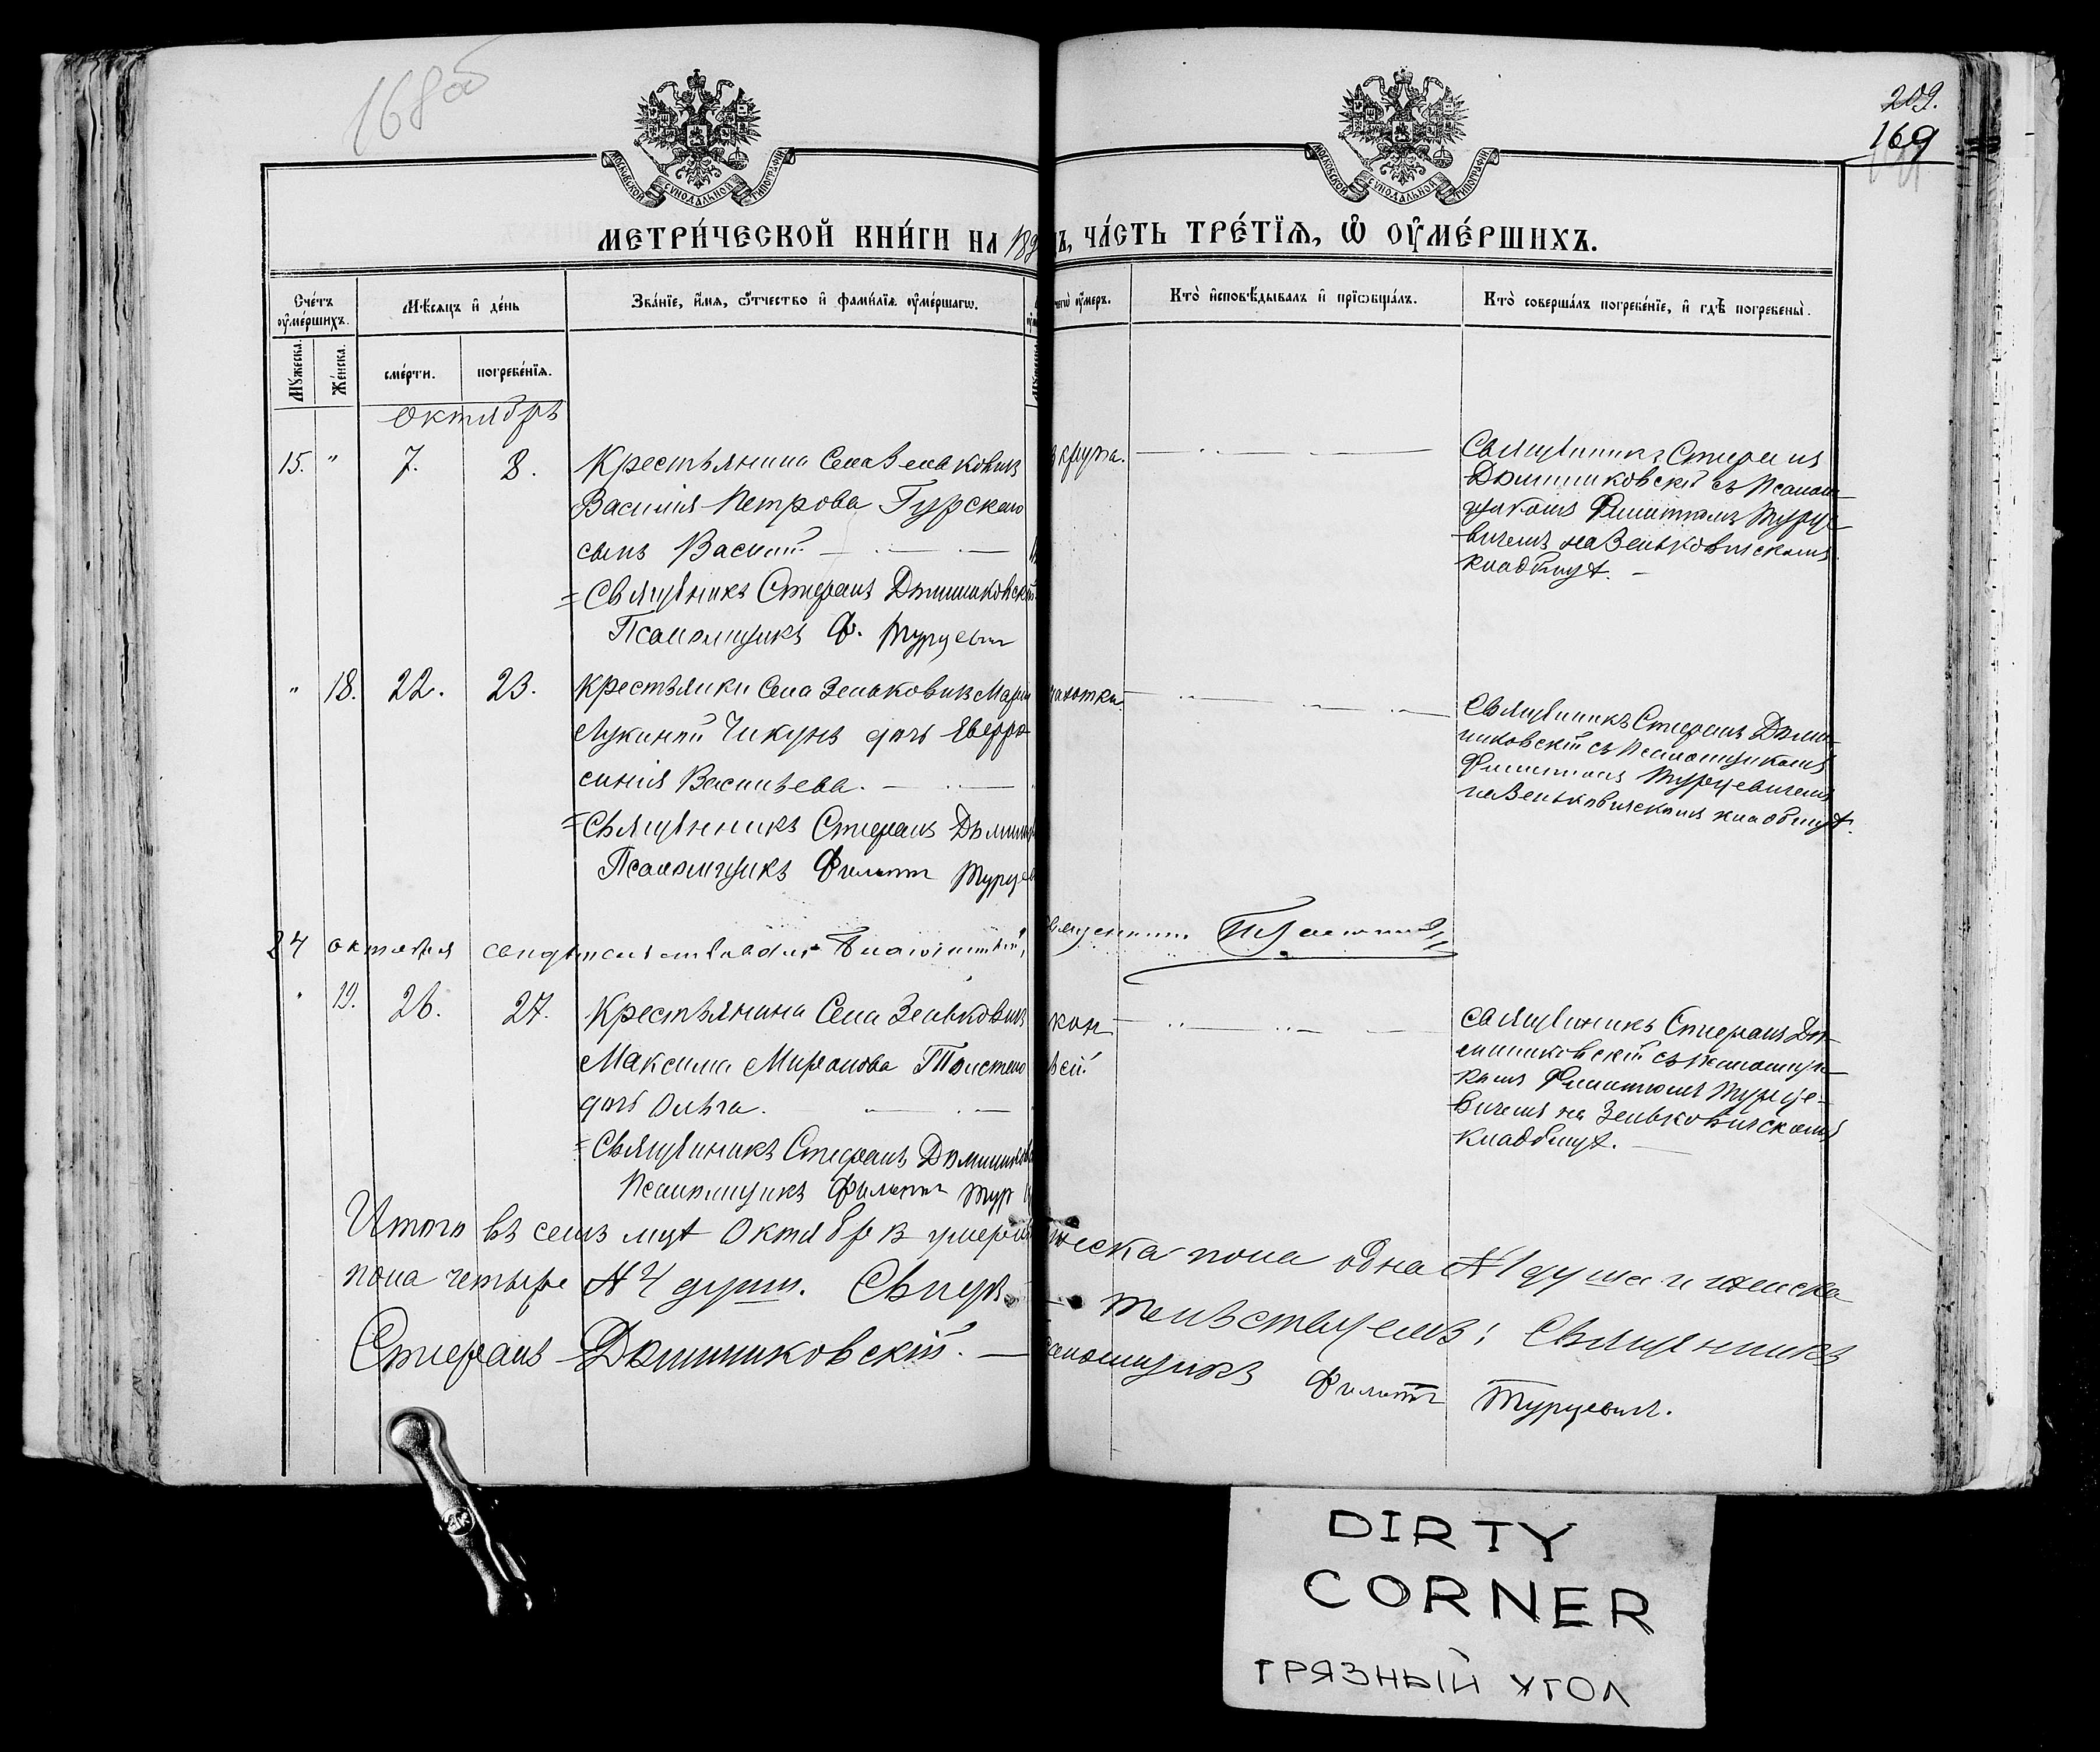 168 об
209.
169
МОСКОВСКОЙ СѴНОДАЛЬНОЙ ТИПОГРАФІИ
МОСКОВСКОЙ СѴНОДАЛЬНОЙ ТИПОГРАФІИ
МЕТРИ́ЧЕСКОЙ КНИ́ГИ НА 189
Ъ, ЧА́СТЬ ТРЕ́ТЇѦ, Ѡ ОУМЕ́РШИХЪ.
Счéтъ оумéршихъ.
Мѣ́сяцъ и дéнь
Звáнїе, и́мя, óтчество и фами́лїя оумéршагѡ.
чегѡ̀ оу́меръ.
Ктò исповѣ́дывалъ и прїѡбщáлъ.
Ктò совершáлъ погребéнїе, и гдѣ̀ погребены̀.
Мужеска.
Жéнска.
смéрти.
погребéнїя.
Октябрь
15. " 7. 8. Крестьянина Села Зельковичъ
Василія Петрова Гурскаго
сынъ Василій
= Священникъ Стефанъ Доминиковскій
Псаломщикъ Ф. Турцевич
крупа.
Священникъ Стефанъ
Доминиковскій съ Псалом-
щикомъ Филиппомъ Турце-
вичемъ на Зельковичскомъ
кладбищѣ. –
" 18. 22. 23. Крестьянки Села Зельковичъ Маріи
Лукиной Чикунъ дочь Евфро-
синія Васильева.
= Священникъ Стефанъ Домини
Псаломщикъ Филиппъ Турцев
чахотки.
Священникъ Стефанъ Доми-
никовскій съ Псаломщикомъ
Филиппомъ Турцевичемъ
на Зельковичскомъ кладбищѣ.
24 октября свидѣтельствовалъ Благочинный,
священникъ
" 19. 26. 27. Крестьянина Села Зельковичъ
Максима Миронова Толстого
дочь Ольга.
= Священникъ Стефанъ Домиников
Псаломщикъ Филиппъ Тур
Священникъ Стефанъ До-
миниковскій съ Псаломщи-
комъ Филиппомъ Турце-
вичемъ на Зельковичскомъ
кладбищѣ.
Итого въ семъ мцѣ Октябрѣ умерло
жеска пола одна № 1 душа и женска
пола четыре № 4 душъ. Свидѣ-
тельствуемъ: Священникъ
Стефанъ Доминиковскій. –
саломщикъ Филиппъ Турцевич.
DIRTY
CORNER
ГРЯЗНЫЙ УГОЛ